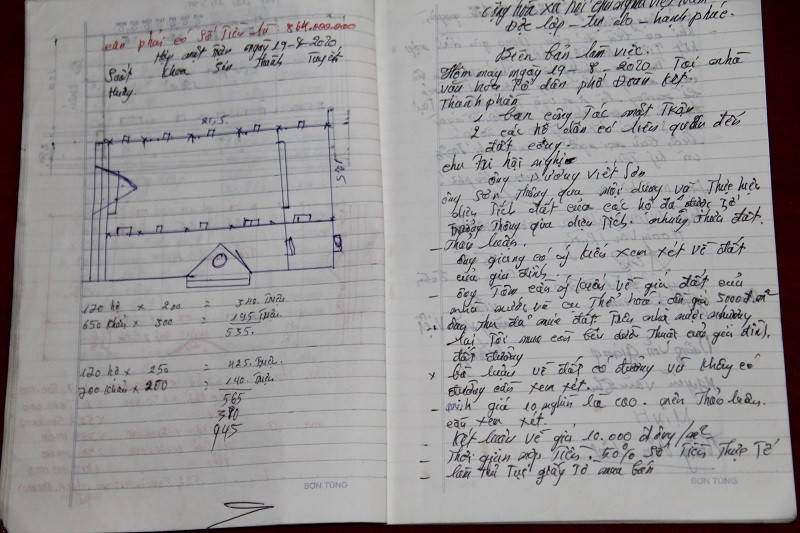 cần phải có số tiền là 864.000.000
Họp mặt trận ngày 19-8-2020
Suốt Khoa Sin Thanh Tuyến
Hưng.
21,5
14,5
170 hộ × 200 = 340. Triệu
650 khẩu × 300 = 195 Triệu
535.
170 hộ × 250 = 425. Triệu.
700 khẩu × 200 = 140. Triệu
565
380
945
SƠN TÙNG
cộng hòa xã hội chủ nghĩa việt nam
Độc lập - Tự do - hạnh phúc.
Biên bản làm việc.
Hôm nay ngày 19 - 8 - 2020. Tại nhà
văn hóa Tổ dân phố Đoàn kết.
Thành phần
1 ban công Tác mặt Trận
2 các hộ dân có liên quan đến
đất công.
chủ trì hội nghị
ông: Dương viết Sơn
ông Sơn Thông qua nội dung và Thực hiện
diện Tích đất của các hộ đã được
Thông qua diện Tích. những Thửa đất.
Thảo luận.
- ông giang có ý kiến xem xét về đất
của gia đình
- ông Tâm cần ý kiến về giá đất của
nhà nước về cụ Thể hóa. giá 5000đ/m²
đất đường
× bố luận về đất có đường và không có
đường cần xem xét.
- giá 10 nghìn là cao. nên Thảo luận.
cần xem xét.
- kết luận về giá 10.000 đồng/m²
- Thời gian nộp Tiền. 50% số Tiền Thực Tế
- làm Thủ Tục giấy Tờ mua bán
SƠN TÙNG